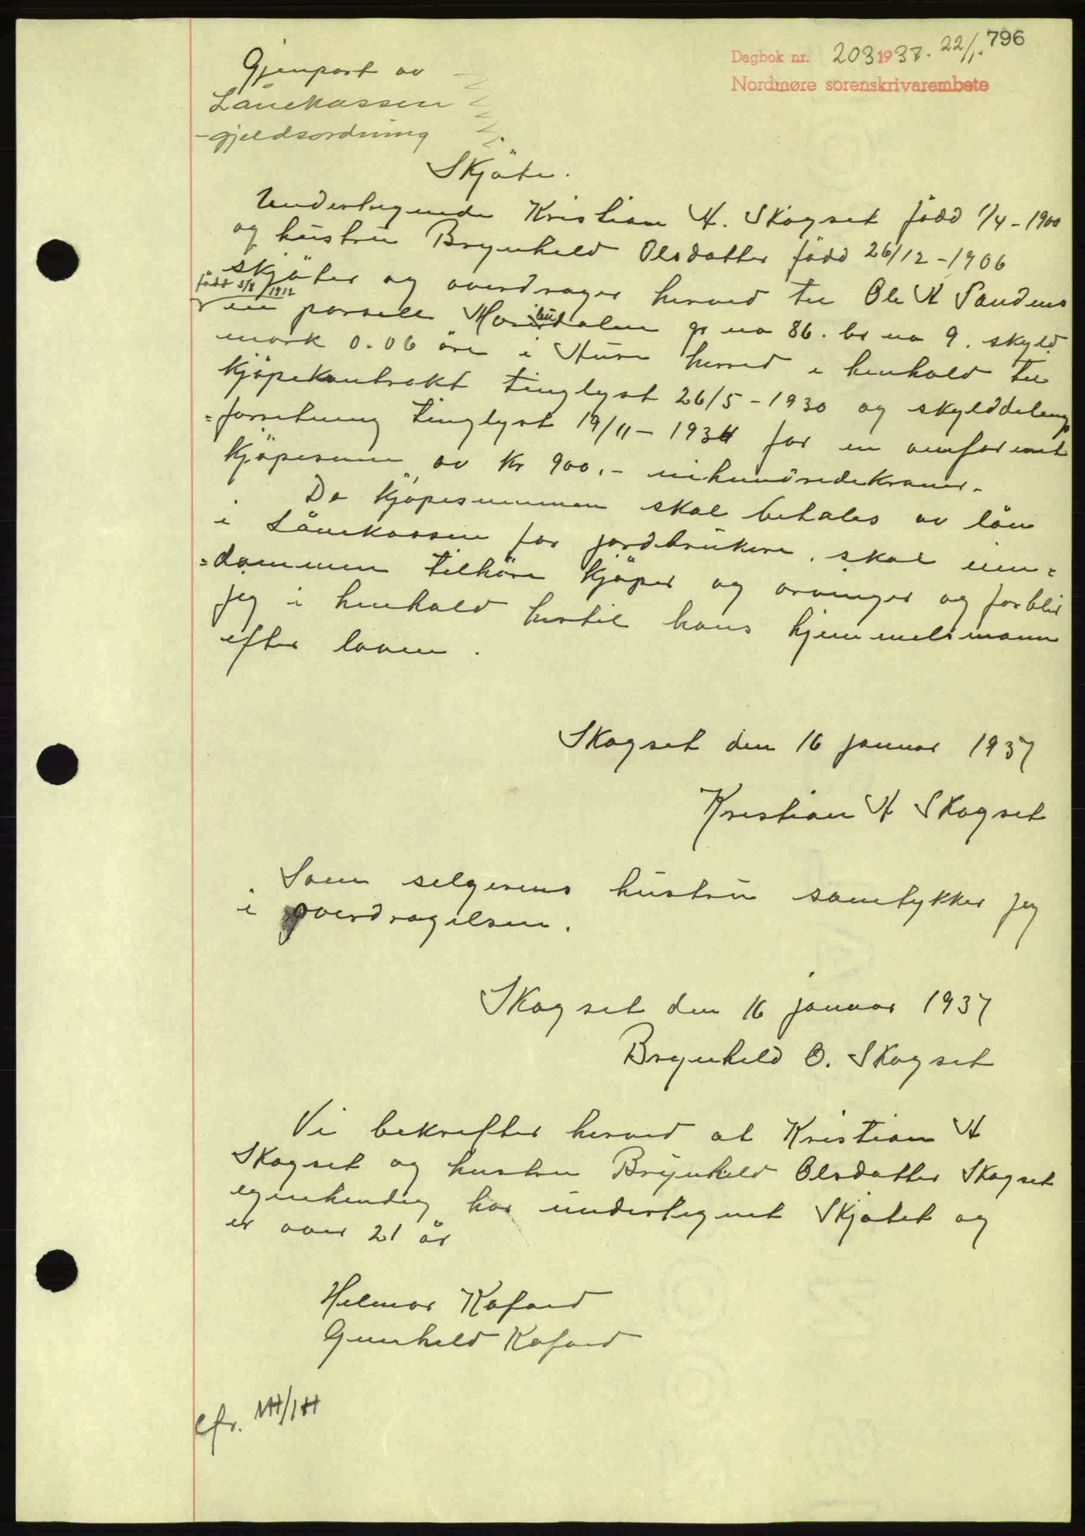 796
Dagbok nr. 203 1937. 22/1.
Nordmøre sorenskrivarembete
Gjenpart av
Lånekassen
- gjeldsordning
Skjöte.
Undertegnede Kristian A. Skogset född 1/4 - 1900
og hustru Brynhild Olsdatter född 26/12 - 1906
skjöter og overdrager herved til Ole A Sandnes
född 3/8 1912
en parsell gr no 86. br no 9. skyld
mark 0.06 öre i Aure herred i henhold til
kjöpekontrakt tinglyst 26/5 - 1930 og skylddelings
= forretning tinglyst 19/11 - 1934 for en omforenet
kjöpesum av kr 900.- nihundredekroner.
Da kjöpesummen skal betales av lån
i Lånekassen for jordbrukere. skal eien=
=dommen tilhöre kjöper og arvinger og forblir
jeg i henhold hertil hans hjemmelsmann
efter loven.
Skogset den 16 januar 1937
Kristian A Skogset
Som selgerens hustru samtykker jeg
i overdragelsen.
Skogset den 16 januar 1937
Brynhild O. Skogset
Vi bekrefter herved at Kristian A
Skogset og hustru Brynhild Olsdatter Skogset
egenhendig har undertegnet Skjötet og
er over 21 år
Helmar Kafoed
Gunhild Kafoed
cfr. MH/IH